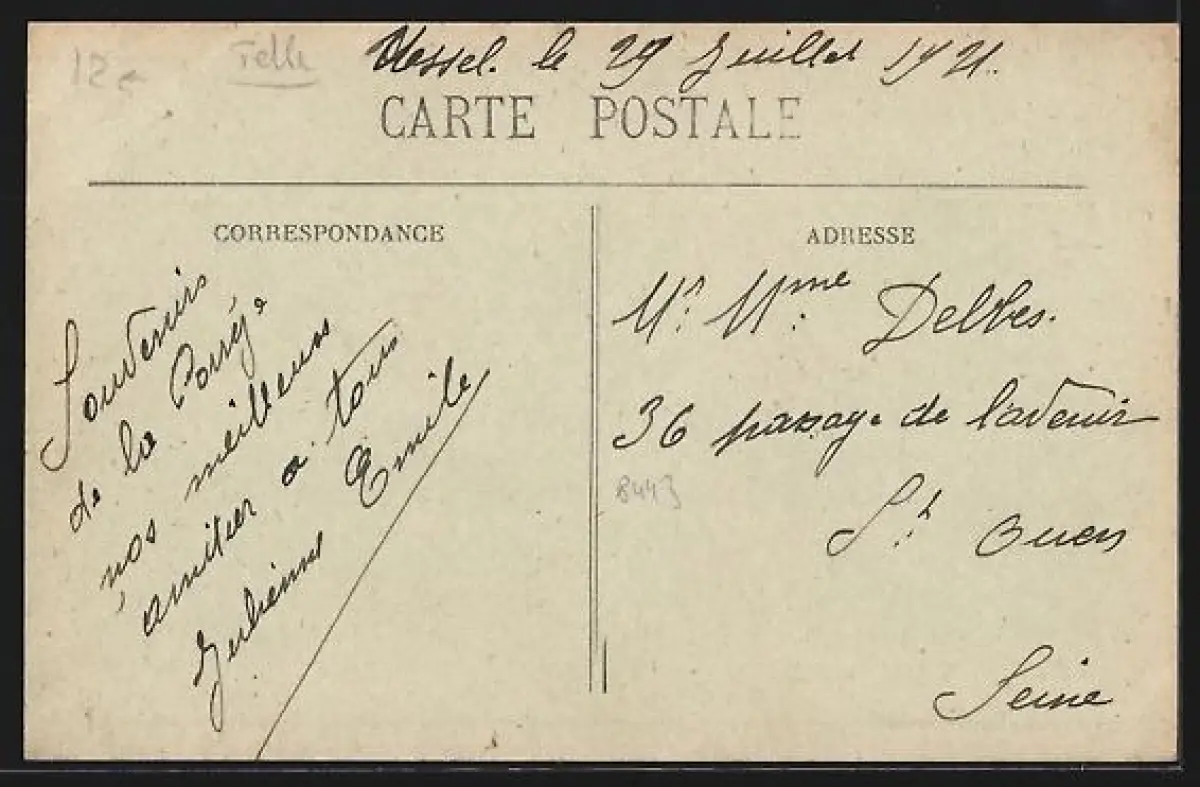 12e Telle
Ussel. le 29 Juillet 1921.
CARTE POSTALE
CORRESPONDANCE
Souvenirs
de la Corréze
nos meilleures
amitier a tous
Julienne Emile
ADRESSE
Mr. Mme Delbes.
36 passage de lavenir
8443
St. Ouen
Seine